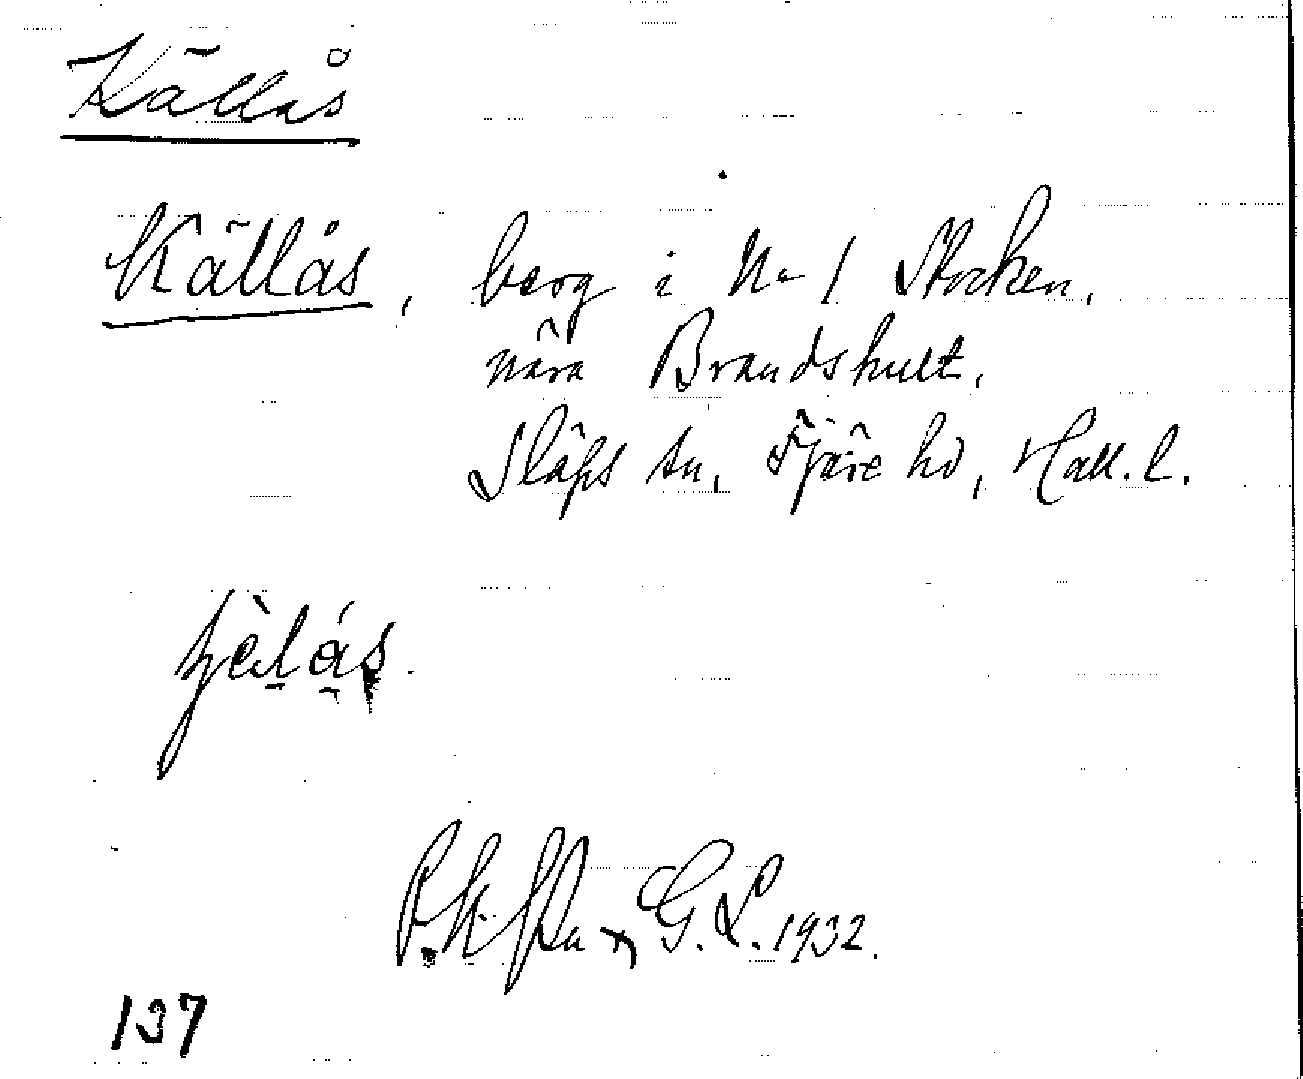 Källås
Källås, berg i N:o 1 Stocken,
nära Brandshult,
Släps sn, Fjäre hd, Hall. l.
G. L. 1932.
137